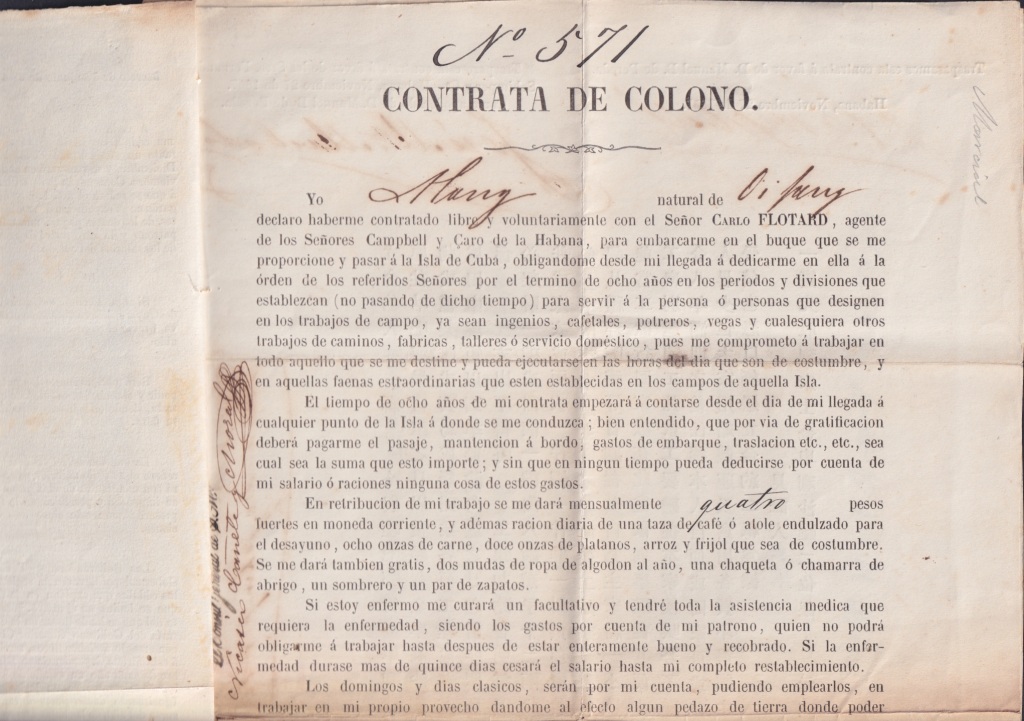 Nº 571
CONTRATA DE COLONO.
Yo Hang natural de
declaro haberme contratado libre y voluntariamente con el Señor CARLO FLOTARD, agente
de los Señores Campbell y Caro de la Habana, para embarcarme en el buque que se me
proporcione y pasar á la Isla de Cuba, obligandome desde mi llegada á dedicarme en ella á la
órden de los referidos Señores por el termino de ocho años en los periodos y divisiones que
establezcan (no pasando de dicho tiempo) para servir á la persona ó personas que designen
en los trabajos de campo, ya sean ingenios, cafetales, potreros, vegas y cualesquiera otros
trabajos de caminos, fabricas, talleres ó servicio doméstico, pues me comprometo á trabajar en
todo aquello que se me destine y pueda ejecutarse en las horas del dia que son de costumbre, y
en aquellas faenas estraordinarias que esten establecidas en los campos de aquella Isla.
El tiempo de ocho años de mi contrata empezará á contarse desde el dia de mi llegada á
cualquier punto de la Isla á donde se me conduzca; bien entendido, que por via de gratificacion
deberá pagarme el pasaje, mantencion á bordo, gastos de embarque, traslacion etc., etc., sea
cual sea la suma que esto importe; y sin que en ningun tiempo pueda deducirse por cuenta de
mi salario ó raciones ninguna cosa de estos gastos.
En retribucion de mi trabajo se me dará mensualmente quatro pesos
fuertes en moneda corriente, y adémas racion diaria de una taza de café ó atole endulzado para
el desayuno, ocho onzas de carne, doce onzas de platanos, arroz y frijol que sea de costumbre.
Se me dará tambien gratis, dos mudas de ropa de algodon al año, una chaqueta ó chamarra de
abrigo, un sombrero y un par de zapatos.
Si estoy enfermo me curará un facultativo y tendré toda la asistencia medica que
requiera la enfermedad, siendo los gastos por cuenta de mi patrono, quien no podrá
obligarme á trabajar hasta despues de estar enteramente bueno y recobrado. Si la enfer-
medad durase mas de quince dias cesará el salario hasta mi completo restablecimiento.
Los domingos y dias clasicos, serán por mi cuenta, pudiendo emplearlos, en
trabajar en mi propio provecho dandome al efecto algun pedazo de tierra donde poder